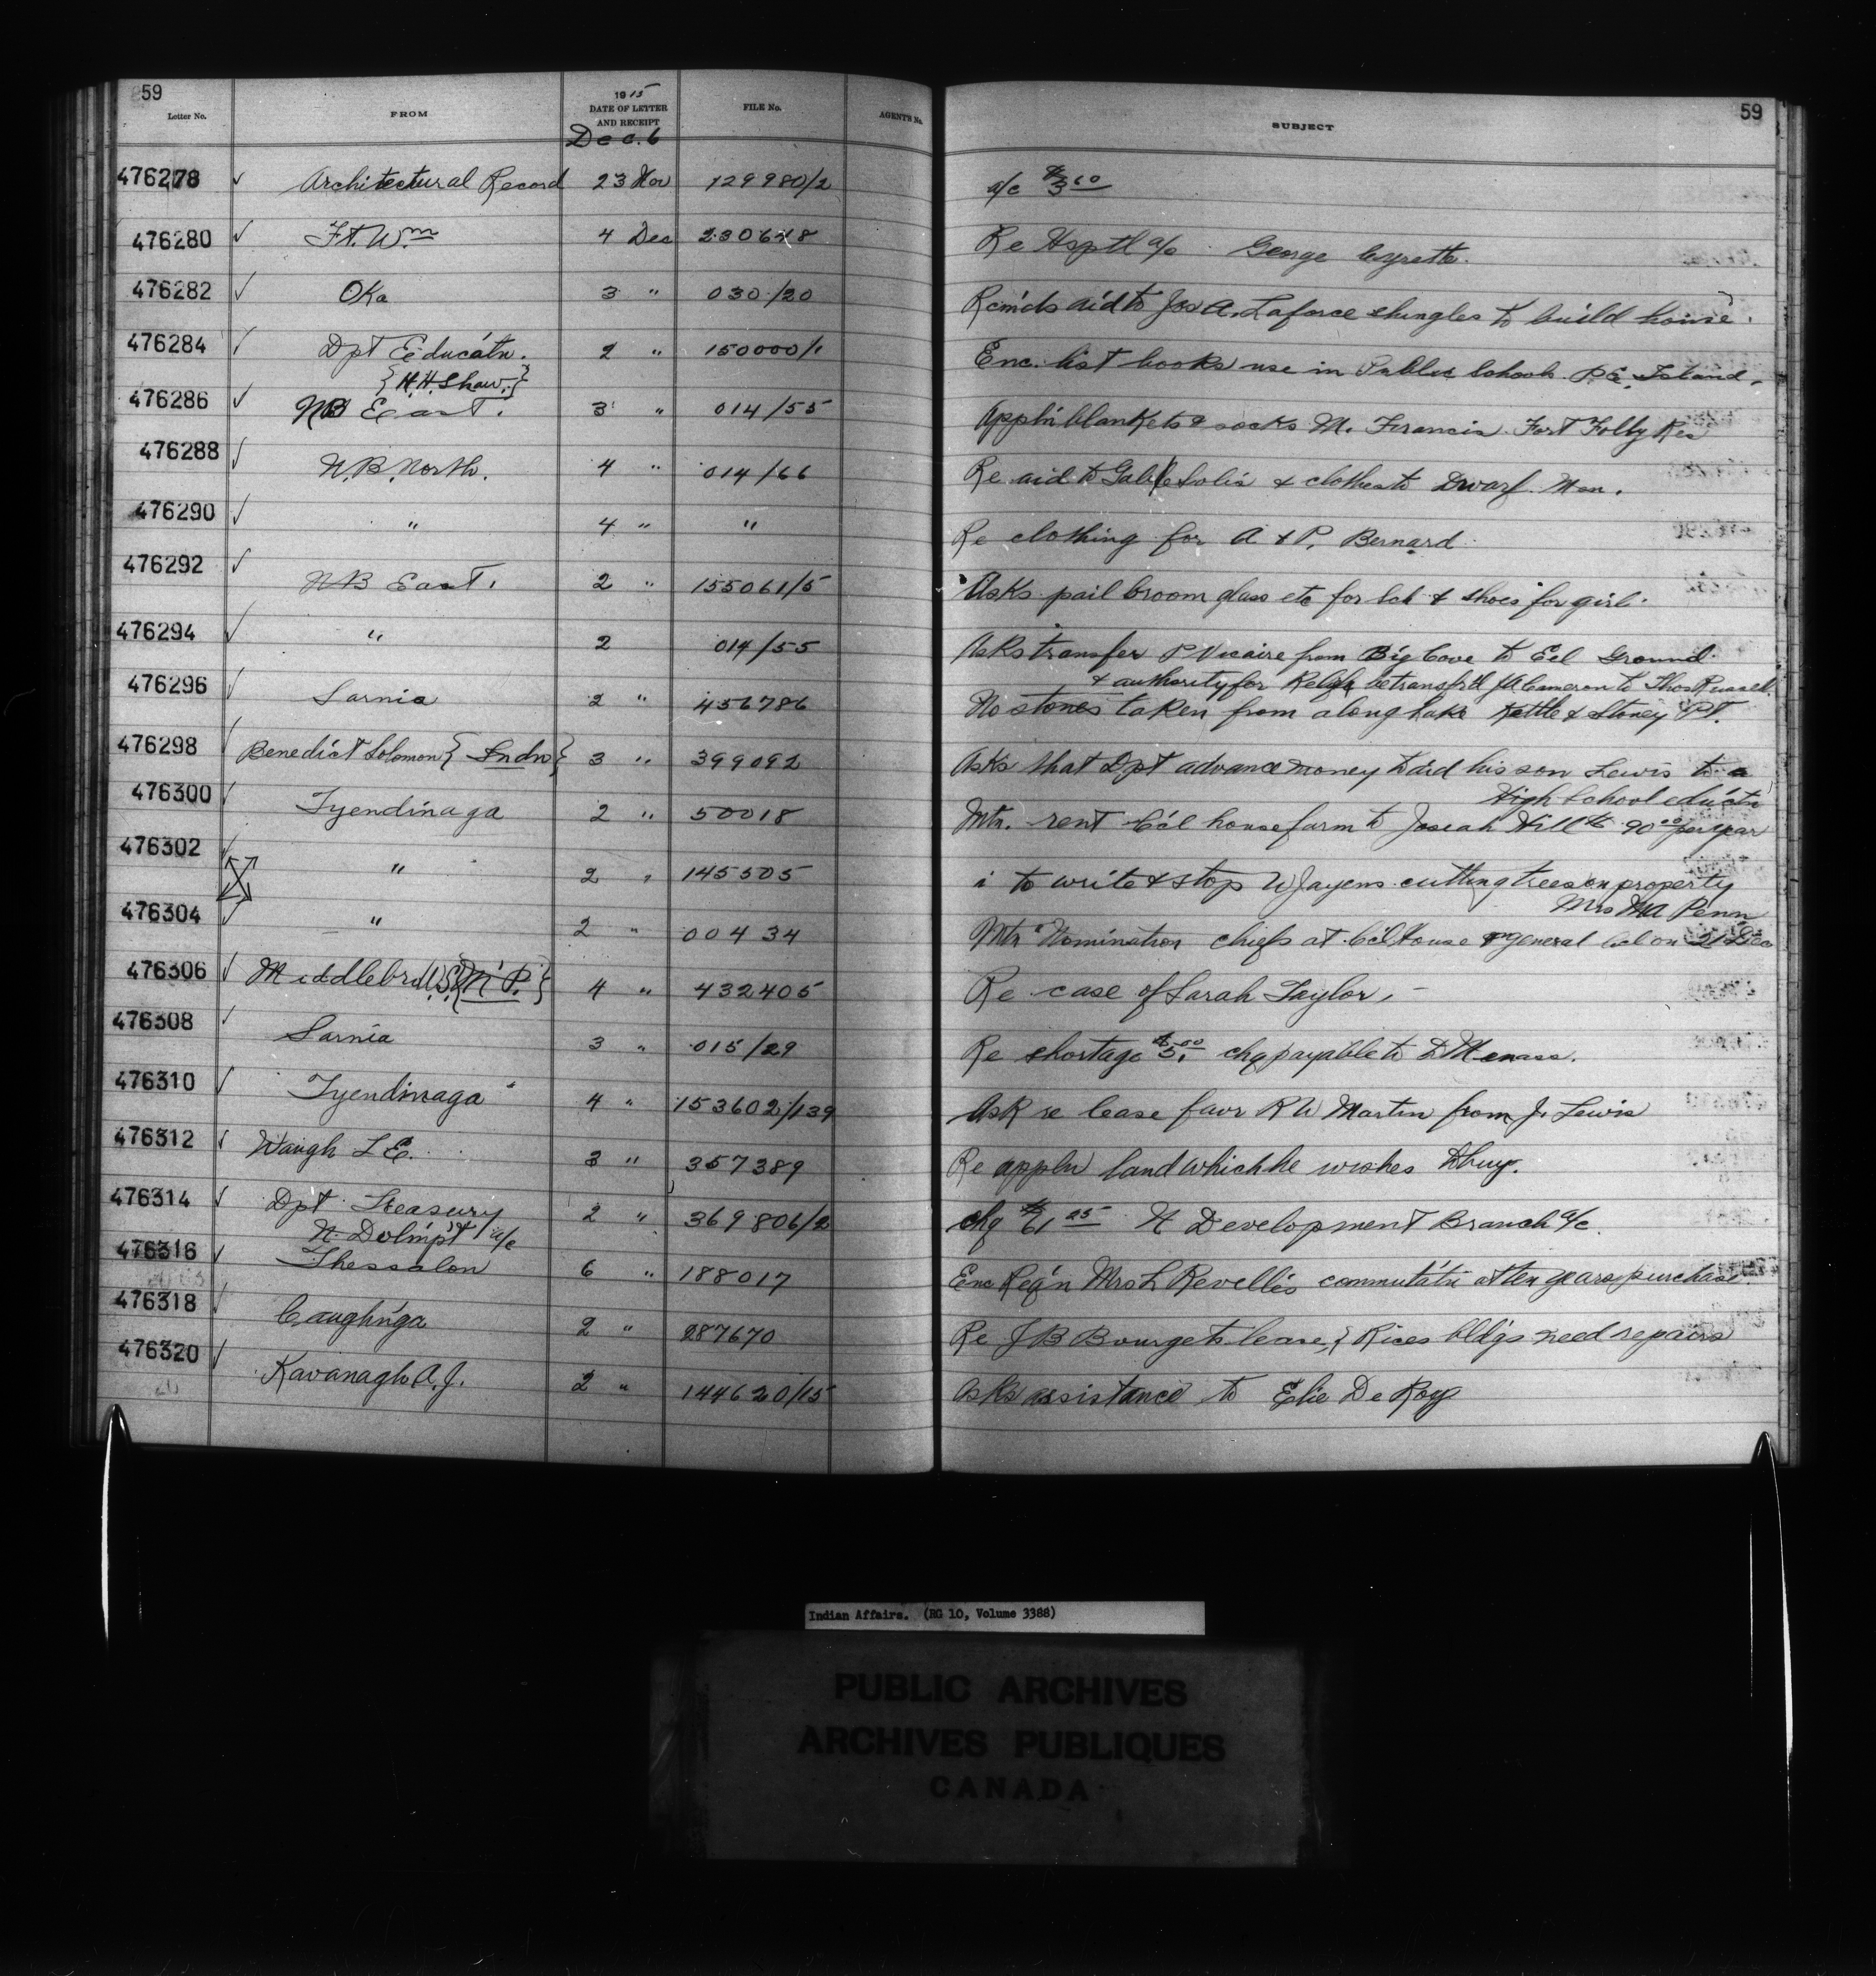 59
Letter No. FROM 1915 DATE OF LETTER AND RECEIPT FILE No. AGENT'S No. SUBJECT 59
Dec. 6
476278 ✓ Architectural Record 23 Nov 129980/2 a/c $3.60
476280 ✓ Ft. Wm 4 Dec 230648 Re Hsptl a/c George
476282 ✓ Oka 3 " 030/20 Rcmds aid to Jos A. Laforce shingles to build house.
476284 ✓ Dpt Educatn. 2 " 150000/1 Enc. list books use in Public Schools P.E. Island.
{H.H. Shaw.}
476286 ✓ NB East. 3 " 014/55 Appln blankets & socks M. Francis Fort Folly Res
476288 ✓ N.B. North. 4 " 014/66 Re aid to & clothes to Dwarf Man.
476290 ✓ " 4 " " Re clothing for A & P. Bernard
476292 ✓ NB East. 2 " 155061/5 Asks pail broom glass etc for Sch & shoes for girl.
476294 ✓ " 2 014/55 Asks transfer P Vicaire from Big Cove to Eel Ground
& authority for Relief be transfrd JA Cameron to Thos Russell.
476296 ✓ Sarnia 2 " 456786 No stones taken from along Lake Kettle & Stoney Pt.
476298 ✓ Benedict Solomon {Indn} 3 " 399092 Asks that Dpt advance money to aid his son Lewis to a
High School eductn
476300 ✓ Tyendinaga 2 " 50018 Mtn. rent Ccl house farm to Josiah Hill 90.00 per year
476302 ✓ " 2 " 145505 to write & stop W Jayens cutting trees on property
Mrs MA Penn
476304 ✓ " 2 " 00434 Mtn Nomination chiefs at Ccl House general Ccl on 21 Dec
476306 ✓ Middlebro W.S. {M.P.} 4 " 432405 Re case of Sarah Taylor,
476308 ✓ Sarnia 3 " 015/29 Re shortage $5.00 chq payable to D Menass.
476310 ✓ Tyendinaga 4 " 153602/139 Ask re lease favr R W Martin from J. Lewis
476312 ✓ Waugh L E. 3 " 357389 Re appln land which he wishes to buy.
476314 ✓ Dpt Treasury 2 " 369806/2 chq $61.25 N Development Branch a/c.
N. Dvlmpt a/c
476316 ✓ Thessalon 6 " 188017 Enc Reqn Mrs L Revelle's commutatn at ten years purchase
476318 ✓ Caughnga 2 " 287670 Re J B Bourget's lease, & Rices bldgs need repairs
476320 ✓ Kavanagh A.J. 2 " 144620/15 Asks assistance to Elie De Roy
Indian Affairs. (RG 10, Volume 3388)
PUBLIC ARCHIVES
ARCHIVES PUBLIQUES
CANADA